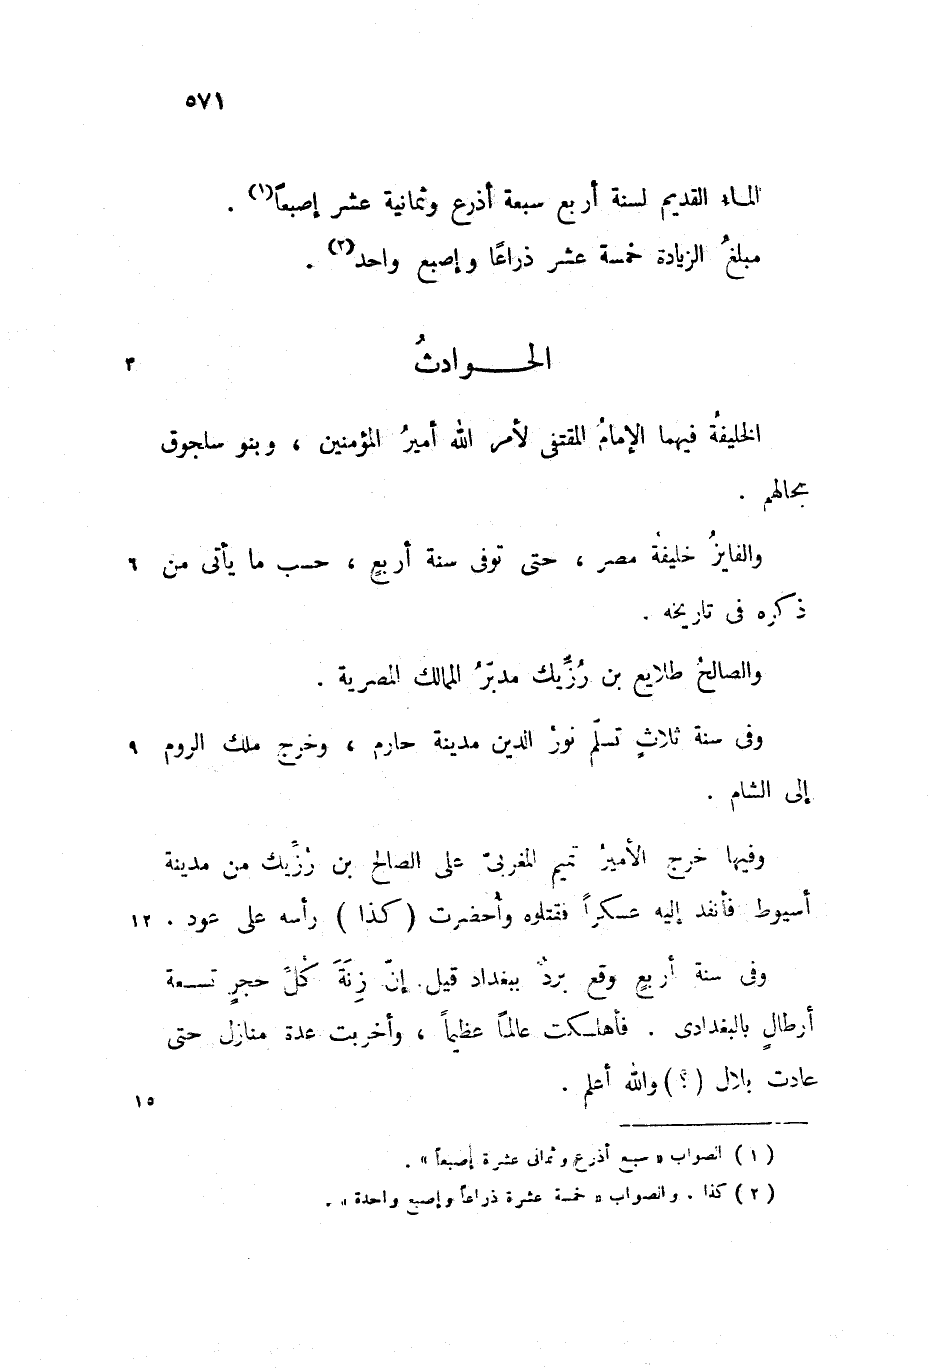 ٥٧١
الماء القديم لسنة أربع سبعة أذرع وثمانية عشر إصبعاً(١) .
مبلغُ الزيادة خمسة عشر ذراعًا وإصبع واحد(٢) .
الحــوادثُ ٣
الخليفةُ فيهما الإمامُ المقتفى لأمر الله أميرُ المؤمنين ، وبنو سلجوق
بحالهم .
والفايزُ خليفةُ مصر ، حتى توفى سنة أربعٍ ، حسب ما يأتى من ٦
ذكره فى تاريخه .
والصالحُ طلايع بن رُزِّيك مدبّرُ الممالك المصرية .
وفى سنة ثلاثٍ تسلّم نورُ الدين مدينة حارم ، وخرج ملك الروم ٩
إلى الشام .
وفيها خرج الأميرُ تميم المغربىّ على الصالح بن رُزِّيك من مدينة
أسيوط فأنفد إليه عسكراً فقتلوه وأُحضرت ( كذا ) رأسه على عود . ١٢
وفى سنة أربعٍ وقع بردٌ ببغداد قيل. إنّ زِنَةَ كُلِّ حجرٍ تسعة
أرطالٍ بالبغدادى . فأهلكت عالماً عظيماً ، وأخربت عدة منازل حتى
عادت بلال (؟) والله أعلم . ١٥
(١) الصواب « سبع أذرع وثمانى عشرة إصبعاً » .
(٢) كذا . والصواب « خمسة عشرة ذراعاً وإصبع واحدة » .